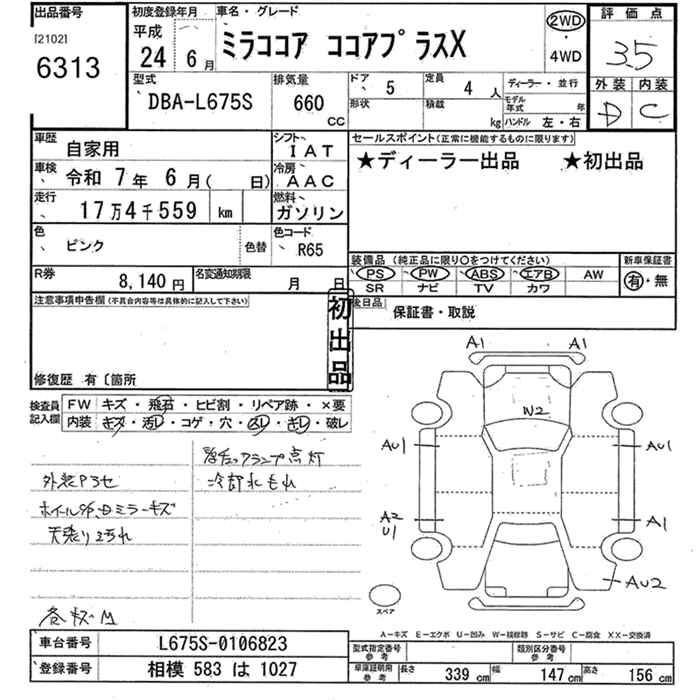 出品番号
[2102]
6313
初度登録年月
平成
24 6月
車名・グレード
ミラココア ココアプラスX
2WD
・
4WD
評価点
3.5
外装 内装
D C
型式
DBA-L675S
排気量
660
CC
ドア 5
定員 4人
形状
積載 kg
ディーラー・並行
モデル年式 年
ハンドル 左・右
車歴
自家用
シフト
IAT
セールスポイント(正常に機能するものに限ります)
★ディーラー出品 ★初出品
車検
令和 7年 6月( 日)
冷房
AAC
走行
17万4千559 km
燃料
ガソリン
色
ピンク
色替
色コード
R65
装備品(純正品に限り○をつけてください)
PS PW ABS エアB AW
SR ナビ TV カワ
新車保証書
有・無
R券
8,140円
名変通知期限
月 日
後日品
保証書・取説
注意事項申告欄(不具合内容等は具体的に記入して下さい)
初出品
修復歴 有〔箇所
検査員記入欄
FW キズ・飛石・ヒビ割・リペア跡・×要
内装 キズ・汚レ・コゲ・穴・スレ・キレ・破レ
ランプ点灯
外装P3セ
冷却水もれ
ホイール ミラーキズ
天張り汚れ
A1 A1
W2
AU1 AU1
A2
U1
A1
AU2
スペア
A―キズ E―エクボ U―凹み W―補修跡 S―サビ C―腐食 XX―交換済
車台番号
L675S-0106823
型式指定番号
参考
類別区分番号
参考
登録番号
相模 583 は 1027
車庫証明用
参考
長さ 339cm 幅 147cm 高さ 156cm